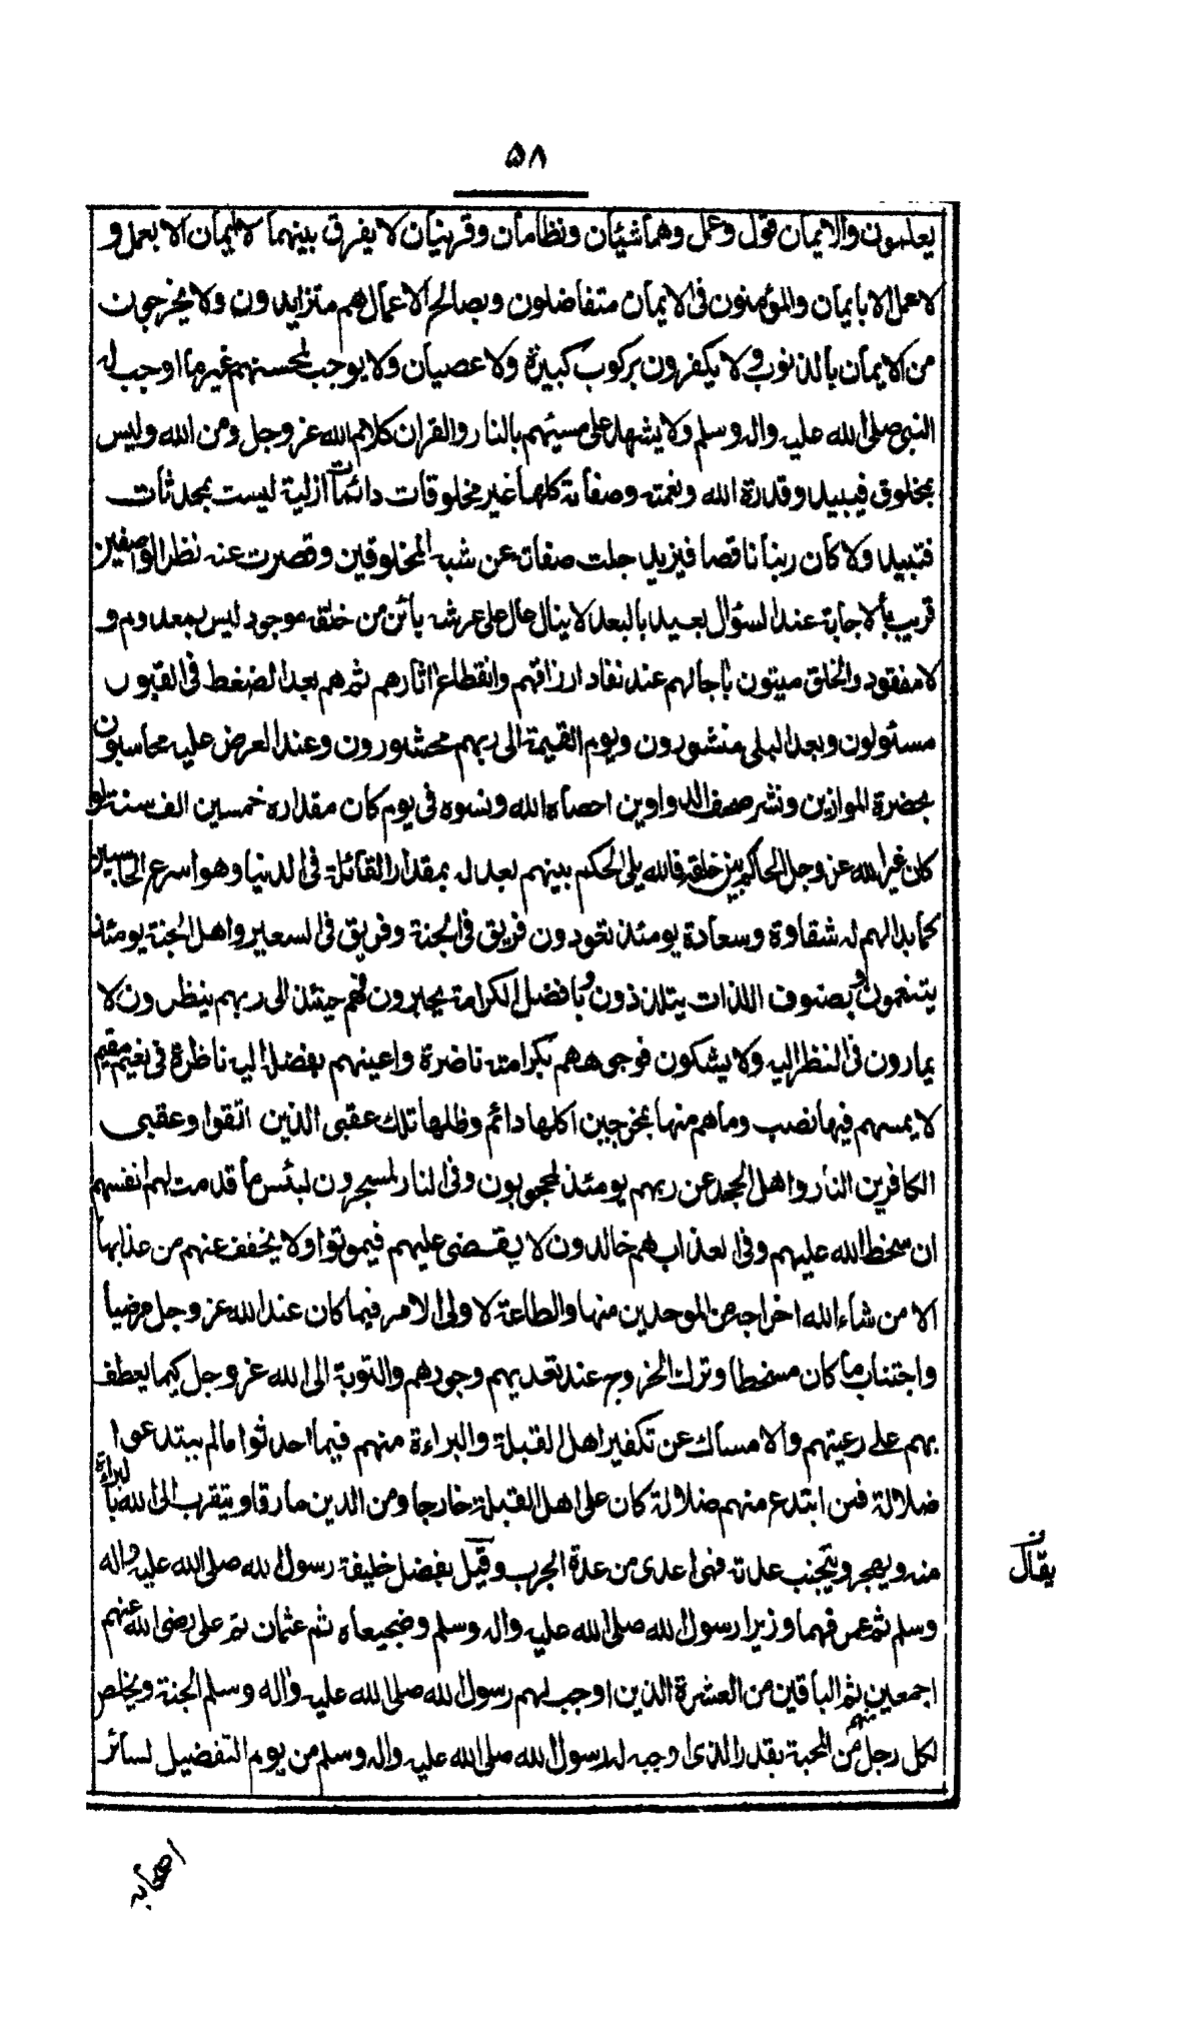 ۵۸
يعلمون والايمان قول وعمل وهما شيئان ونظامان وقرينان لا يفرق بينهما لا ايمان الا بعمل و
لا عمل الا بايمان والمؤمنون فى الايمان متفاضلون وبصالح الاعمال هم متزايدون ولا يخرجون
من الايمان بالذنوب ولا يكفرون بركوب كبيرة ولا عصيان ولا يوجب لمحسنهم غير ما اوجب له
النبى صلى الله عليه واله وسلم ولا يشهد على مسيئهم بالنار والقران كلام الله عز وجل ومن الله وليس
بمخلوق فيبيد وقدرة الله ونعمته وصفاته كلها غير مخلوقات دائمات ازلية ليست بمحدثات
فتبيد ولا كان ربنا ناقصا فيزيد جلت صفاته عن شبه المخلوقين وقصرت عنه نظر الواصفين
قريب بالاجابة عند السؤال بعيد بالبعد لا ينال عال على عرشه بائن من خلقه موجود ليس بمعدوم و
لا مفقود والخلق ميتون باجالهم عند نفاد ارزاقهم وانقطاع اثارهم ثم هم بعد الضغط فى القبور
مسئولون وبعد البلى منشورون ويوم القيمة الى ربهم محشورون وعند العرض عليه محاسبون
بحضرة الموازين ونشر صحف الدواوين احصاه الله ونسوه فى يوم كان مقداره خمسين الف سنة لو
كان غير الله عز وجل الحاكم بين خلقه فالله يلى الحكم بينهم بعدله بمقدار القائلة فى الدنيا وهو اسرع الحاسبين
كما بدا لهم له شقاوة وسعادة يومئذ تعودون فريق فى الجنة وفريق فى السعير واهل الجنة يومئذ
يتنعمون وبصنوف اللذات يتلذذون وبافضل الكرامة يحبرون فهم حينئذ الى ربهم ينظرون لا
يمارون فى النظر اليه ولا يشكون فوجوههم بكرامته ناضرة واعينهم بفضله اليه ناظرة فى نعيم مقيم
لا يمسهم فيها نصب وما هم منها بمخرجين اكلها دائم وظلها تلك عقبى الذين اتقوا وعقبى
الكافرين النار واهل الجحد عن ربهم يومئذ لمحجوبون وفى النار لمسجرون لبئس ما قدمت لهم انفسهم
ان سخط الله عليهم وفى العذاب هم خالدون لا يقضى عليهم فيموتوا ولا يخفف عنهم من عذابها
الا من شاء الله اخراجه من الموحدين منها والطاعة لاولى الامر فيما كان عند الله عز وجل مرضيا
واجتناب ما كان مسخطا وترك الخروج عند تعديهم وجورهم والتوبة الى الله عز وجل كيما يعطف
بهم على رعيتهم والامساك عن تكفير اهل القبلة والبراءة منهم فيما احدثوا مالم يبتدعوا
ضلالة فمن ابتدع منهم ضلالة كان على اهل القبلة خارجا ومن الدين مارقا ويتقرب الى الله بالبراءة
منه ويهجر ويتجنب عدته فهى اعدى من عدة الجرب وقيل بفضل خليفة رسول الله صلى الله عليه واله
يقال
وسلم ثم عمر فهما وزيرا رسول الله صلى الله عليه واله وسلم وضجيعاه ثم عثمان ثم على رضى الله عنهم
اجمعين ثم الباقين من العشرة الذين اوجب لهم رسول الله صلى الله عليه واله وسلم الجنة ويخلص
لكل رجل منهم من المحبة بقدر الذى اوجبه له رسول الله صلى الله عليه واله وسلم من يوم التفضيل لسائر
اصحابه